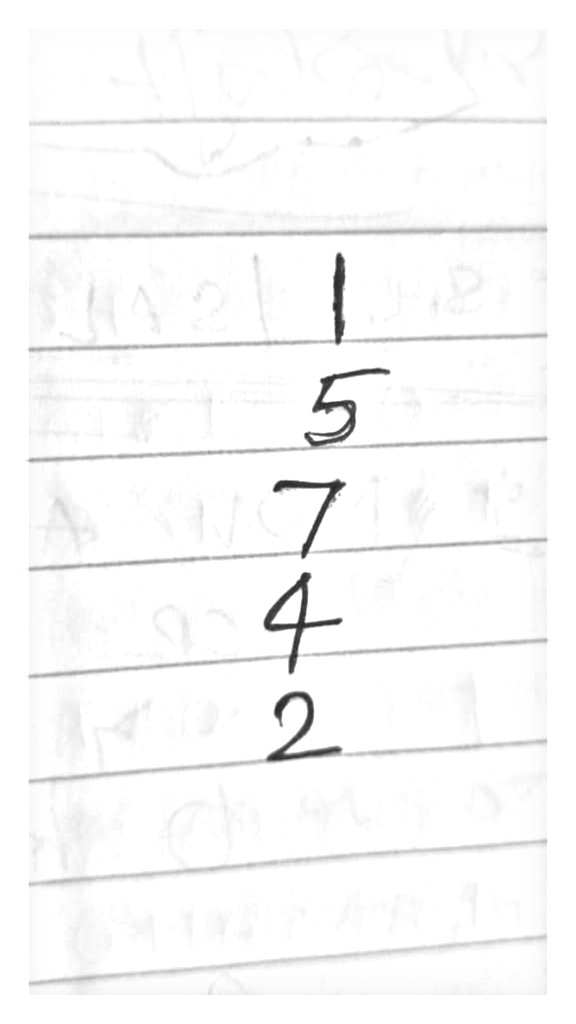 1
5
7
4
2